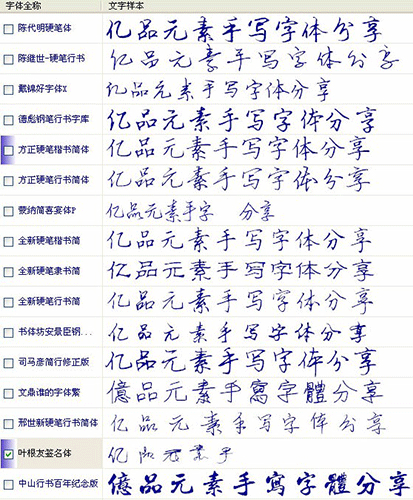 字体全称 文字样本
陈代明硬笔体 亿品元素手写字体分享
陈继世-硬笔行书 亿品元素手写字体分享
戴锦好字体X 亿品元素手写字体分享
德彪钢笔行书字库 亿品元素手写字体分享
方正硬笔楷书简体 亿品元素手写字体分享
方正硬笔行书简体 亿品元素手写字体分享
蒙纳简喜宴体P 亿品元素手字 分享
全新硬笔楷书简 亿品元素手写字体分享
全新硬笔隶书简 亿品元素手写字体分享
全新硬笔行书简 亿品元素手写字体分享
书体坊安景臣钢... 亿品元素手写字体分享
司马彦简行修正版 亿品元素手写字体分享
文鼎谁的字体繁 億品元素手寫字體分享
邢世新硬笔行书简体 亿品元素手写字体分享
叶根友签名体 亿品元素手
中山行书百年纪念版 億品元素手寫字體分享